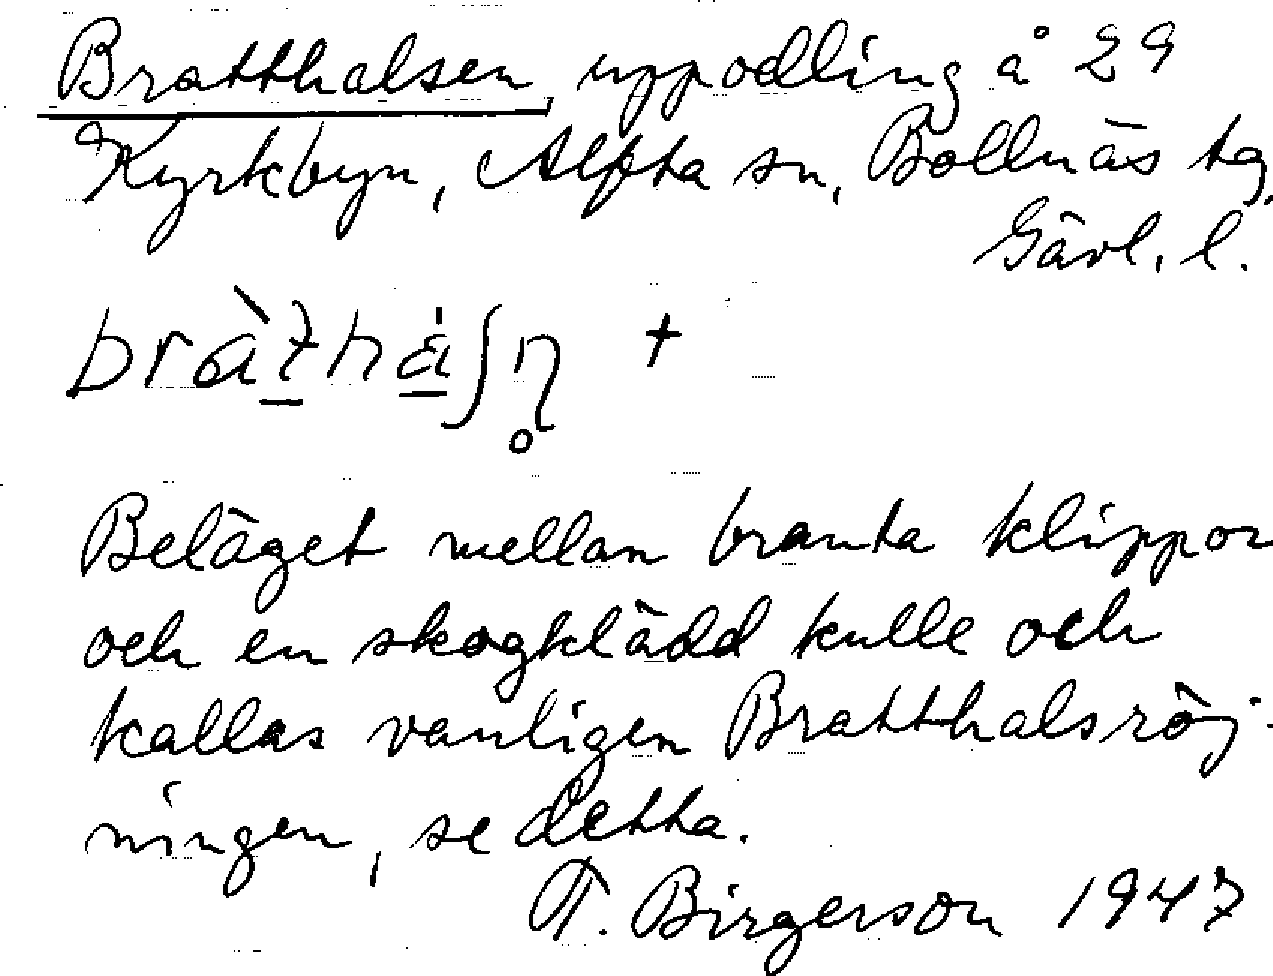 Bratthalsen, uppodling å 29
Kyrkbyn, Alfta sn, Bollnäs tg,
Gävl. l.
Beläget mellan branta klippor
och en skogklädd kulle och
kallas vanligen Bratthalsröj-
ningen, se detta.
T. Birgerson 1947